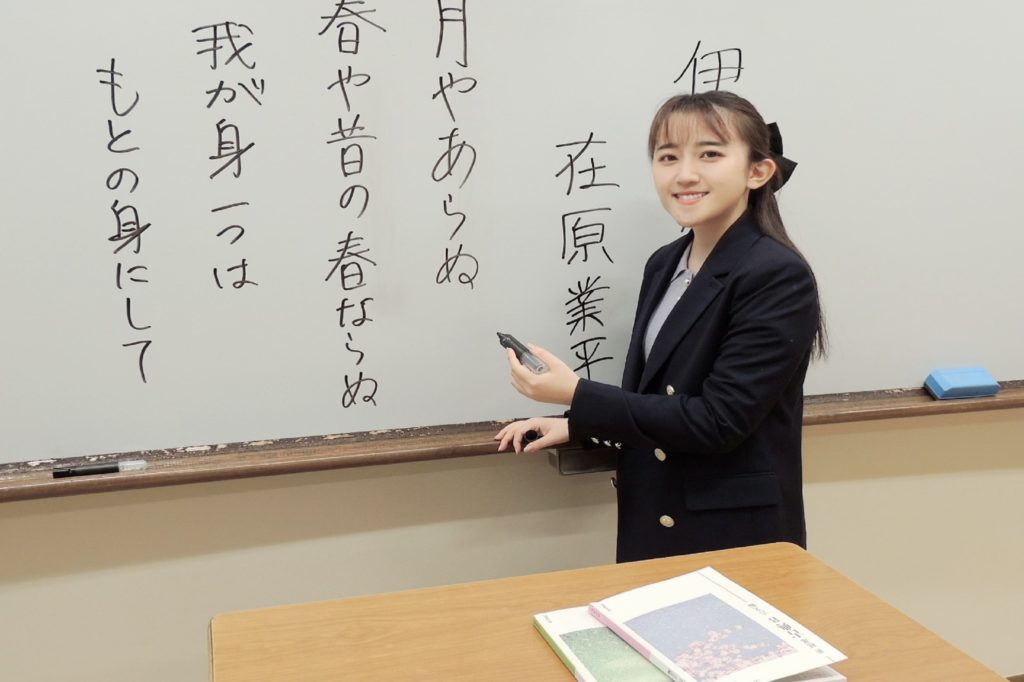 伊
在原業平
月やあらぬ
春や昔の春ならぬ
我が身一つは
もとの身にして